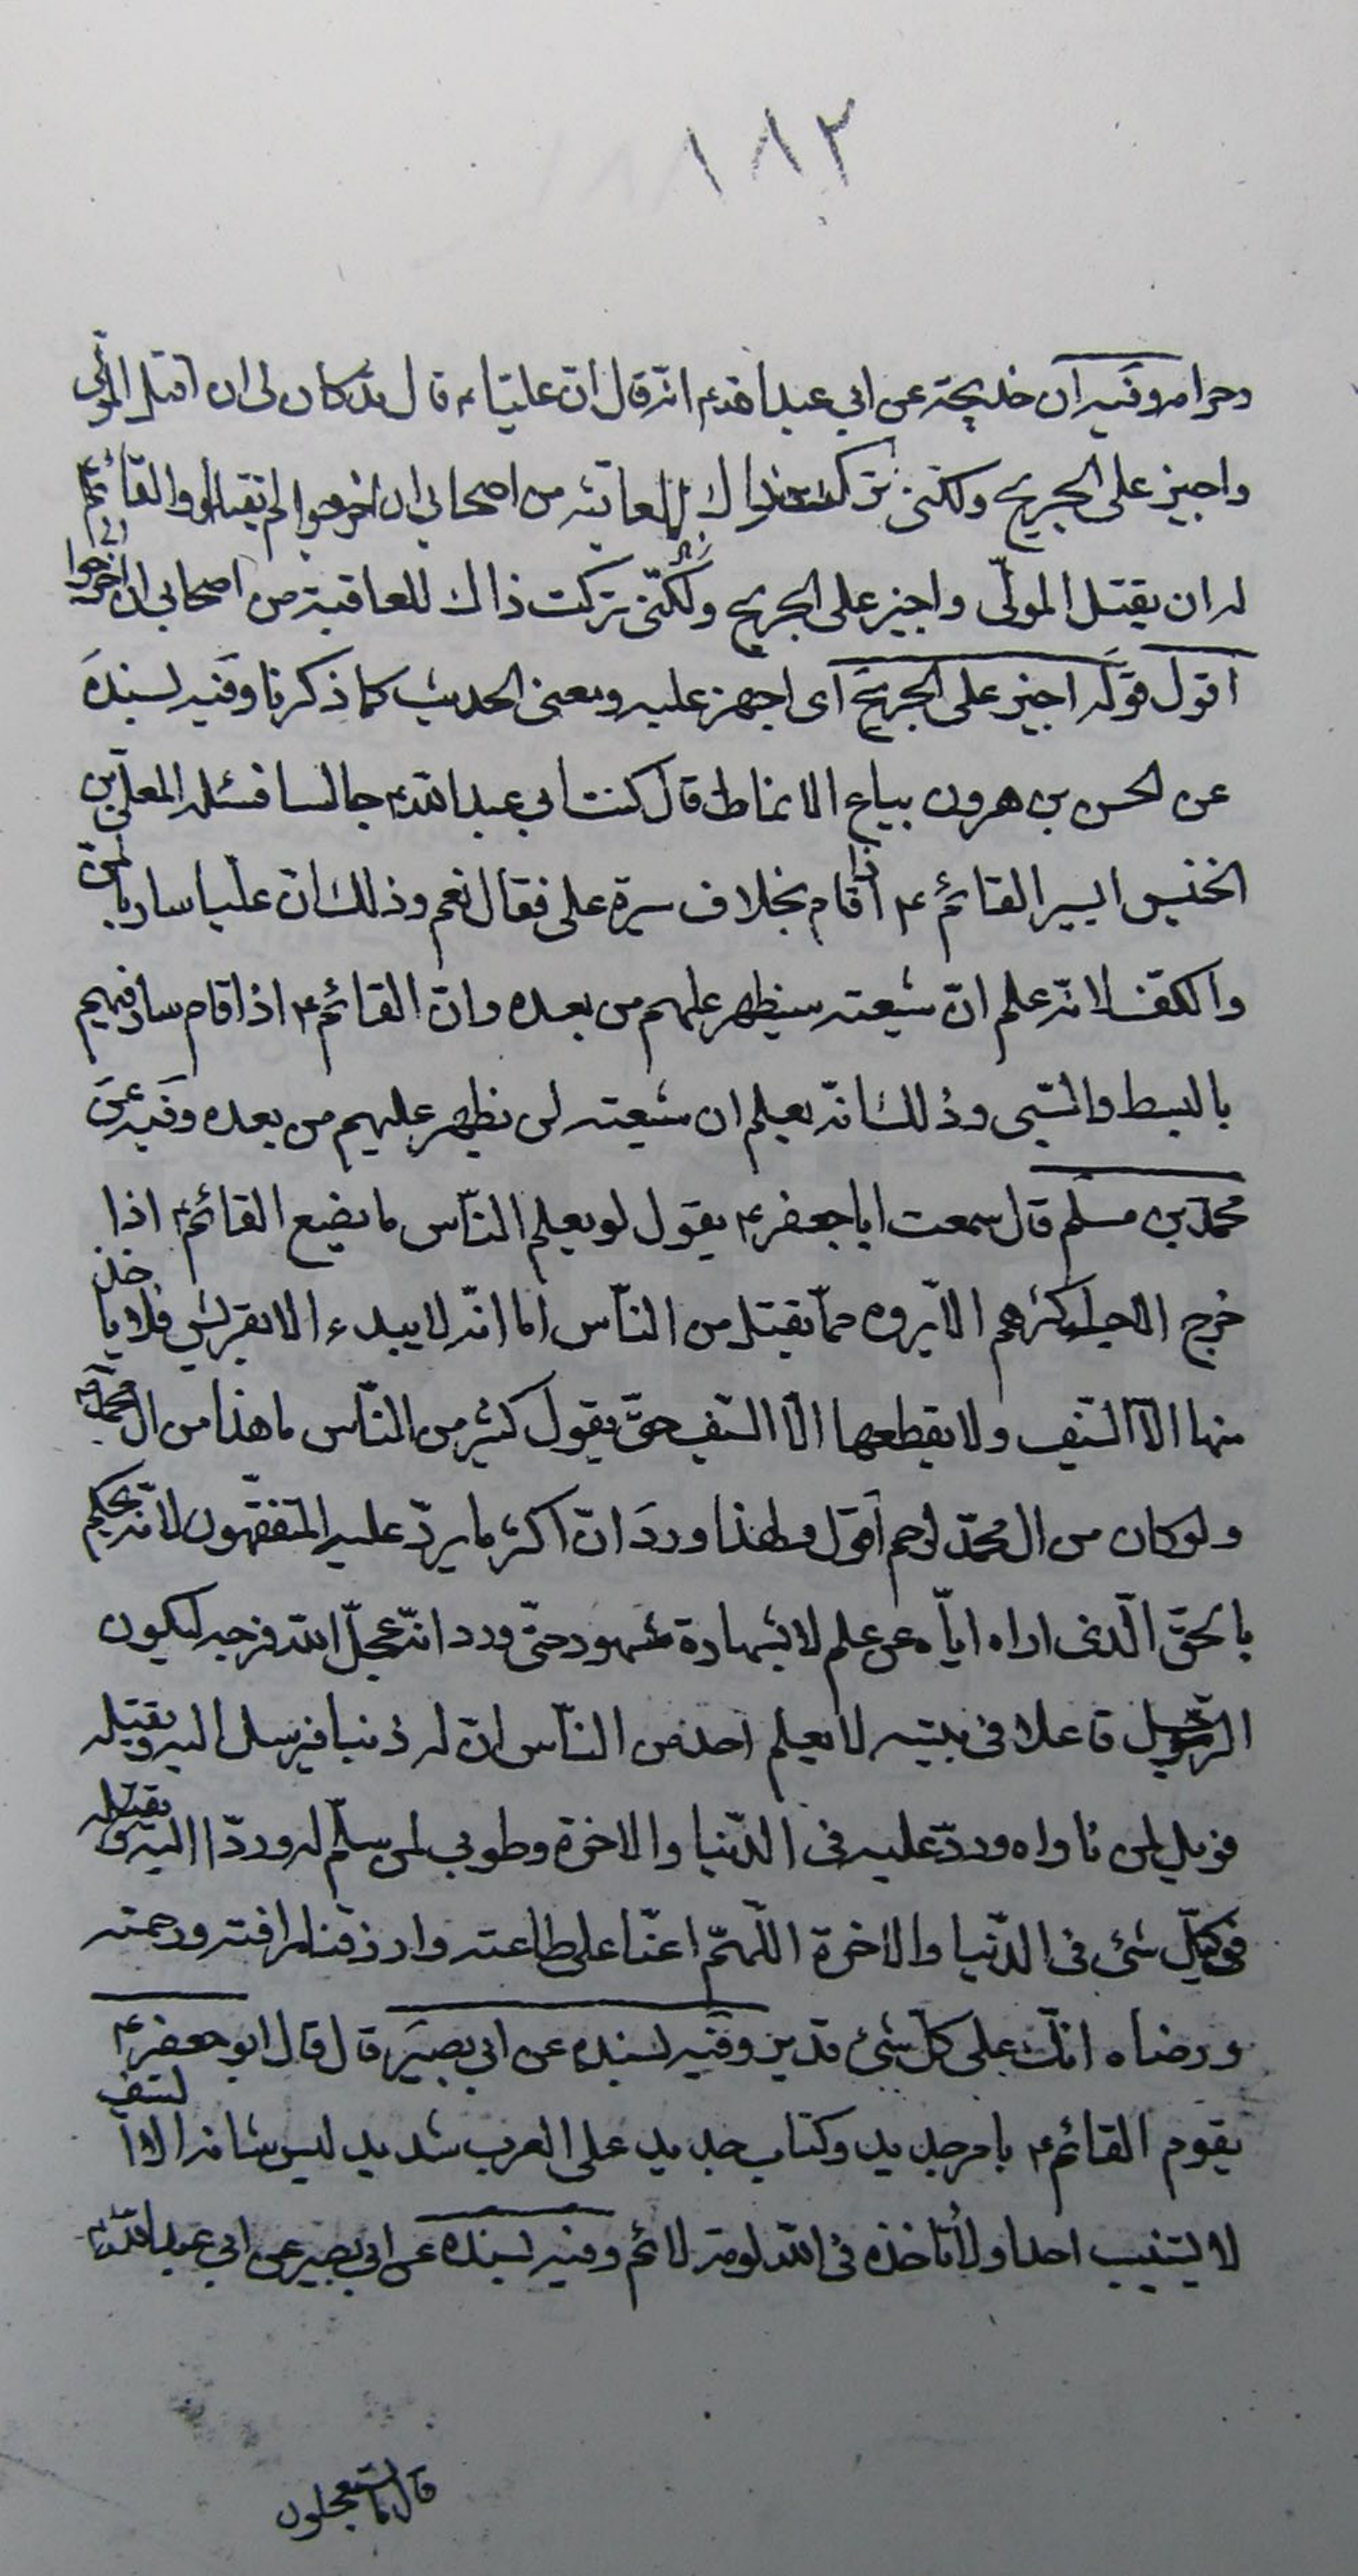 ١٨٢
وحرامه وفيه ان خديجة عن ابي عبد الله ع انه قال ان عليا ع قال قد كان لى ان اقتل المولّى
واجيز على الجريح ولكنى تركت ذلك للعاقبة من اصحابى ان خرجوا لم يقتلوا والقائم ع
له ان يقتل المولّى واجيز على الجريح ولكنّى تركت ذاك للعاقبة من اصحابى ان خرجوا
اقول قوله اجيز على الجريح اى اجهز عليه ومعنى الحديث كما ذكرنا وفيه بسنده
عن الحسن بن هرون بياع الانماط قال كنت ابى عبد الله ع جالسا فسئله المعلّى بن
الخنيس ايسير القائم ع اذا قام بخلاف سيرة على فقال نعم وذلك ان عليا سار بالمنّ
والكف لانه علم ان شيعته سيظهر عليهم من بعده وان القائم ع اذا قام سار فيهم
بالبسط والسّبى وذلك انه يعلم ان شيعته لن يظهر عليهم من بعده وفيه عن
محمّد بن مسلم قال سمعت ابا جعفر ع يقول لو يعلم النّاس ما يصنع القائم ع اذا
خرج لاحب اكثرهم الّا يروه ممّا يقتل من النّاس اما انّه لا يبدء الا بقريش فلا ياخذ
منها الّا السّيف ولا يقطعها الّا السّيف حتّى يقول كثير من النّاس ما هذا من ال محمّد
ولو كان من ال محمّد لرحم اقول ولهذا ورد انّ اكثر ما يردّ عليه المتفقّهون لانّه يحكم
بالحقّ الّذى اراه ايّاه عن علم لا بشهادة شهود حتّى ورد انّه عجّل الله فرجه ليكون
الرّجل قاعدا فى بيته لا يعلم احد من النّاس انّ له ذنبا فيرسل اليه ويقتله
فويل لمن ناواه وردّ عليه فى الدّنيا والاخرة وطوبى لمن سلّم له وردّ اليه
فى كلّ شئ فى الدّنيا والاخرة اللّهمّ اعنّا على طاعته وارزقنا رافته ورحمته
ورضاه انّك على كلّ شئ قدير وفيه بسنده عن ابى بصير قال قال ابو جعفر ع
يقوم القائم ع بامر جديد وكتاب جديد على العرب شديد ليس شانه الّا السّيف
لا يستنيب احدا ولا تاخذه فى الله لومة لائم وفيه بسنده عن ابى بصير عن ابى عبد الله ع
قال ما تستعجلون